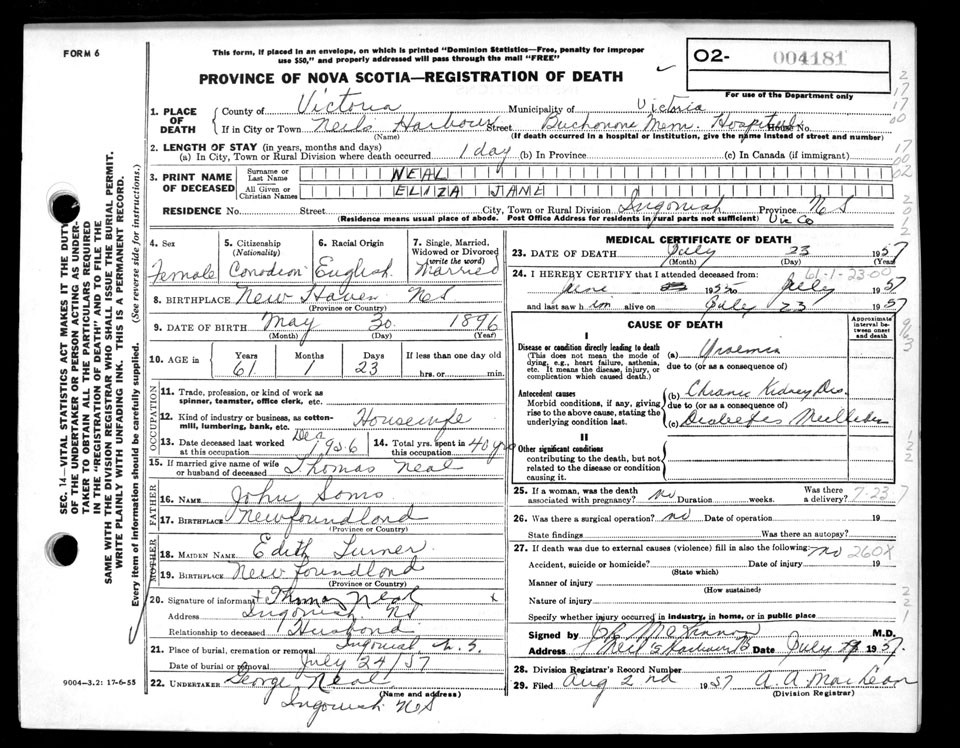 FORM 6
This form, if placed in an envelope, on which is printed "Dominion Statistics—Free, penalty for improper
use $50," and properly addressed will pass through the mail "FREE"
02- 004181
For use of the Department only
PROVINCE OF NOVA SCOTIA—REGISTRATION OF DEATH
1. PLACE OF DEATH
County of Victoria Municipality of Victoria
If in City or Town Neils Harbour Street Buchanan Mem. Hospital House No.
(Name) (If death occurred in a hospital or institution, give the name instead of street and number)
2. LENGTH OF STAY (in years, months and days)
(a) In City, Town or Rural Division where death occurred 1 day (b) In Province (c) In Canada (if immigrant)
3. PRINT NAME OF DECEASED
Surname or Last Name NEAL
All Given or Christian Names ELIZA JANE
RESIDENCE No. Street City, Town or Rural Division Ingonish Province NS
(Residence means usual place of abode. Post Office Address for residents in rural parts not sufficient) Vic Co
4. Sex Female
5. Citizenship (Nationality) Canadian
6. Racial Origin English
7. Single, Married, Widowed or Divorced (write the word) Married
8. BIRTHPLACE New Haven NS
(Province or Country)
9. DATE OF BIRTH May 30 1896
(Month) (Day) (Year)
10. AGE in Years 61 Months 1 Days 23 If less than one day old
hrs. or min.
OCCUPATION
11. Trade, profession, or kind of work as
spinner, teamster, office clerk, etc.
12. Kind of industry or business, as cotton-
mill, lumbering, bank, etc. Housewife
13. Date deceased last worked at this occupation Dec 1956
14. Total yrs. spent in this occupation 40 yrs
15. If married give name of wife or husband of deceased Thomas Neal
FATHER
16. NAME John Soms
17. BIRTHPLACE Newfoundland
(Province or Country)
MOTHER
18. MAIDEN NAME Edith Turner
19. BIRTHPLACE Newfoundland
(Province or Country)
20. Signature of informant Thomas Neal x
Address Ingonish NS
Relationship to deceased Husband
21. Place of burial, cremation or removal Ingonish N.S.
Date of burial or removal July 24/57
22. UNDERTAKER George Neal
(Name and address)
Ingonish NS
9004—3.2: 17-6-55
MEDICAL CERTIFICATE OF DEATH
23. DATE OF DEATH July 23 1957
(Month) (Day) (Year)
61-1-23-00
24. I HEREBY CERTIFY that I attended deceased from:
June 1955 to July 1957
and last saw h im alive on July 23 1957
CAUSE OF DEATH
Approximate interval between onset and death
I
Disease or condition directly leading to death
(This does not mean the mode of dying, e.g., heart failure, asthenia, etc. It means the disease, injury, or complication which caused death.)
(a) Uraemia
due to (or as a consequence of)
Antecedent causes
Morbid conditions, if any, giving rise to the above cause, stating the underlying condition last.
(b) Chronic Kidney Dis.
due to (or as a consequence of)
(c) Diabetes Mellitus
II
Other significant conditions
contributing to the death, but not related to the disease or condition causing it.
25. If a woman, was the death associated with pregnancy? no Duration weeks. Was there a delivery? 7-23 7
26. Was there a surgical operation? no Date of operation 19
State findings Was there an autopsy?
27. If death was due to external causes (violence) fill in also the following: no 260X
Accident, suicide or homicide? Date of injury 19
(State which)
Manner of injury
(How sustained)
Nature of injury
Specify whether injury occurred in industry, in home, or in public place
Signed by M.D.
Neil's Harbour Date July 1957
28. Division Registrar's Record Number
29. Filed Aug 2nd 1957 A. A. MacLean
(Division Registrar)
SEC. 14—VITAL STATISTICS ACT MAKES IT THE DUTY
OF THE UNDERTAKER OR PERSON ACTING AS UNDER-
TAKER TO OBTAIN ALL THE PARTICULARS REQUIRED
IN THE "REGISTRATION OF DEATH" AND TO FILE THE
SAME WITH THE DIVISION REGISTRAR WHO SHALL ISSUE THE BURIAL PERMIT.
WRITE PLAINLY WITH UNFADING INK. THIS IS A PERMANENT RECORD.
Every item of information should be carefully supplied. (See reverse side for instructions.)